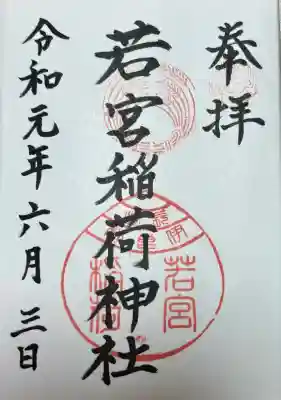 奉拝
若宮稲荷神社
令和元年六月三日
若宮